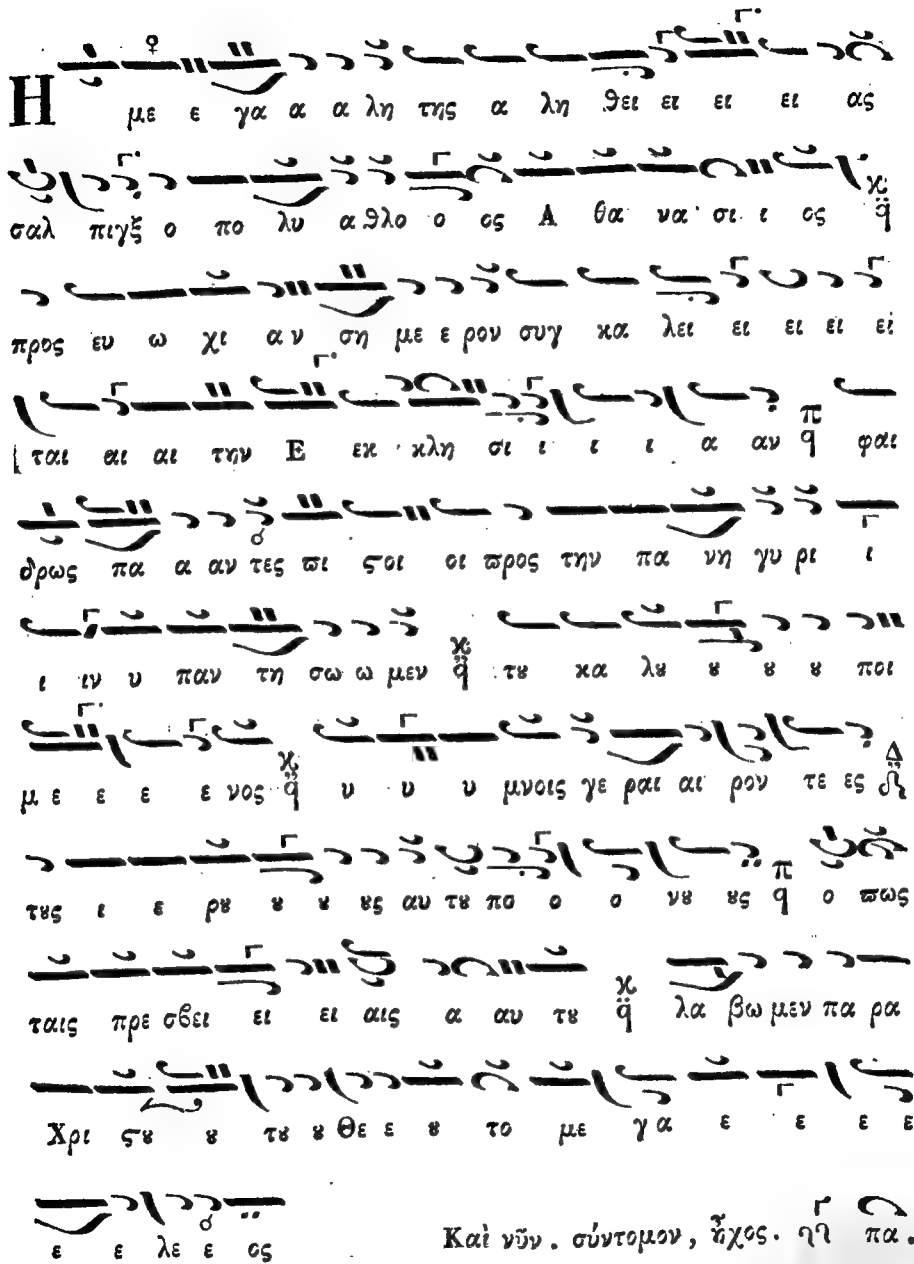 Η με ε γα α α λη της α λη θει ει ει ει ας
σαλ πιγξ ο πο λυ α θλο ο ος Α θα να σι ι ος ϰ q̈
προς ευ ω χι αν ση με ε ρον συγ κα λει ει ει ει ει
ται αι αι την Ε εκ κλη σι ι ι ι α αν π q φαι
δρως πα α αν τες ϖι ϛοι οι ϖρος την πα νη γυ ρι ι
ι ιν υ παν τη σω ω μεν ϰ q̈ τȣ κα λȣ ȣ ȣ ȣ ποι
μ ε ε ε ε νος ϰ q̈ υ υ υ μνοις γε ραι αι ρον τε ες Δ
τȣς ι ε ρȣ ȣ ȣ ȣς αυ τȣ πο ο ο νȣ ȣς π q ο ϖως
ταις πρε σβει ει ει αις α αυ τȣ ϰ q̈ λα βω μεν πα ρα
Χρι ϛȣ ȣ τȣ ȣ Θε ε ȣ το με γα ε ε ε ε
ε ε λε ε ος Καὶ νῦν. σύντομον, ἦχος. πα.